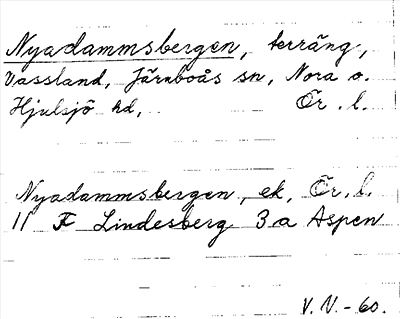 Nyadammsbergen, terräng,
Vassland, Järnboås sn, Nora o.
Hjulsjö hd, Ör. l.
Nyadammsbergen, ek. Ör. l.
11 F Lindesberg 3 a Aspen
V. V. - 60.